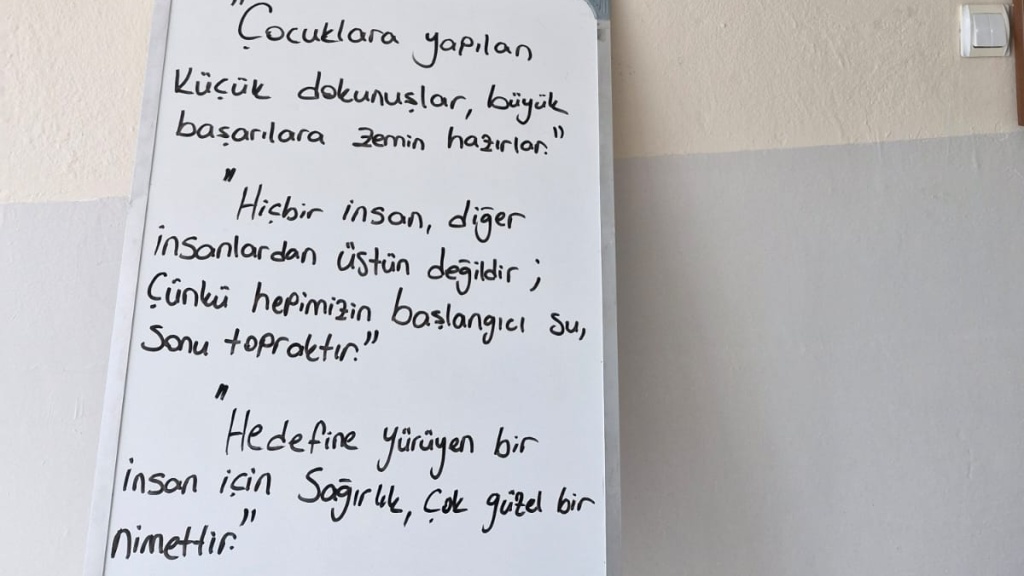 "Çocuklara yapılan
Küçük dokunuşlar, büyük
başarılara zemin hazırlar."
"Hiçbir insan, diğer
insanlardan üstün değildir;
Çünkü hepimizin başlangıcı su,
Sonu topraktır."
"Hedefine yürüyen bir
insan için Sağırlık, Çok güzel bir
nimettir."